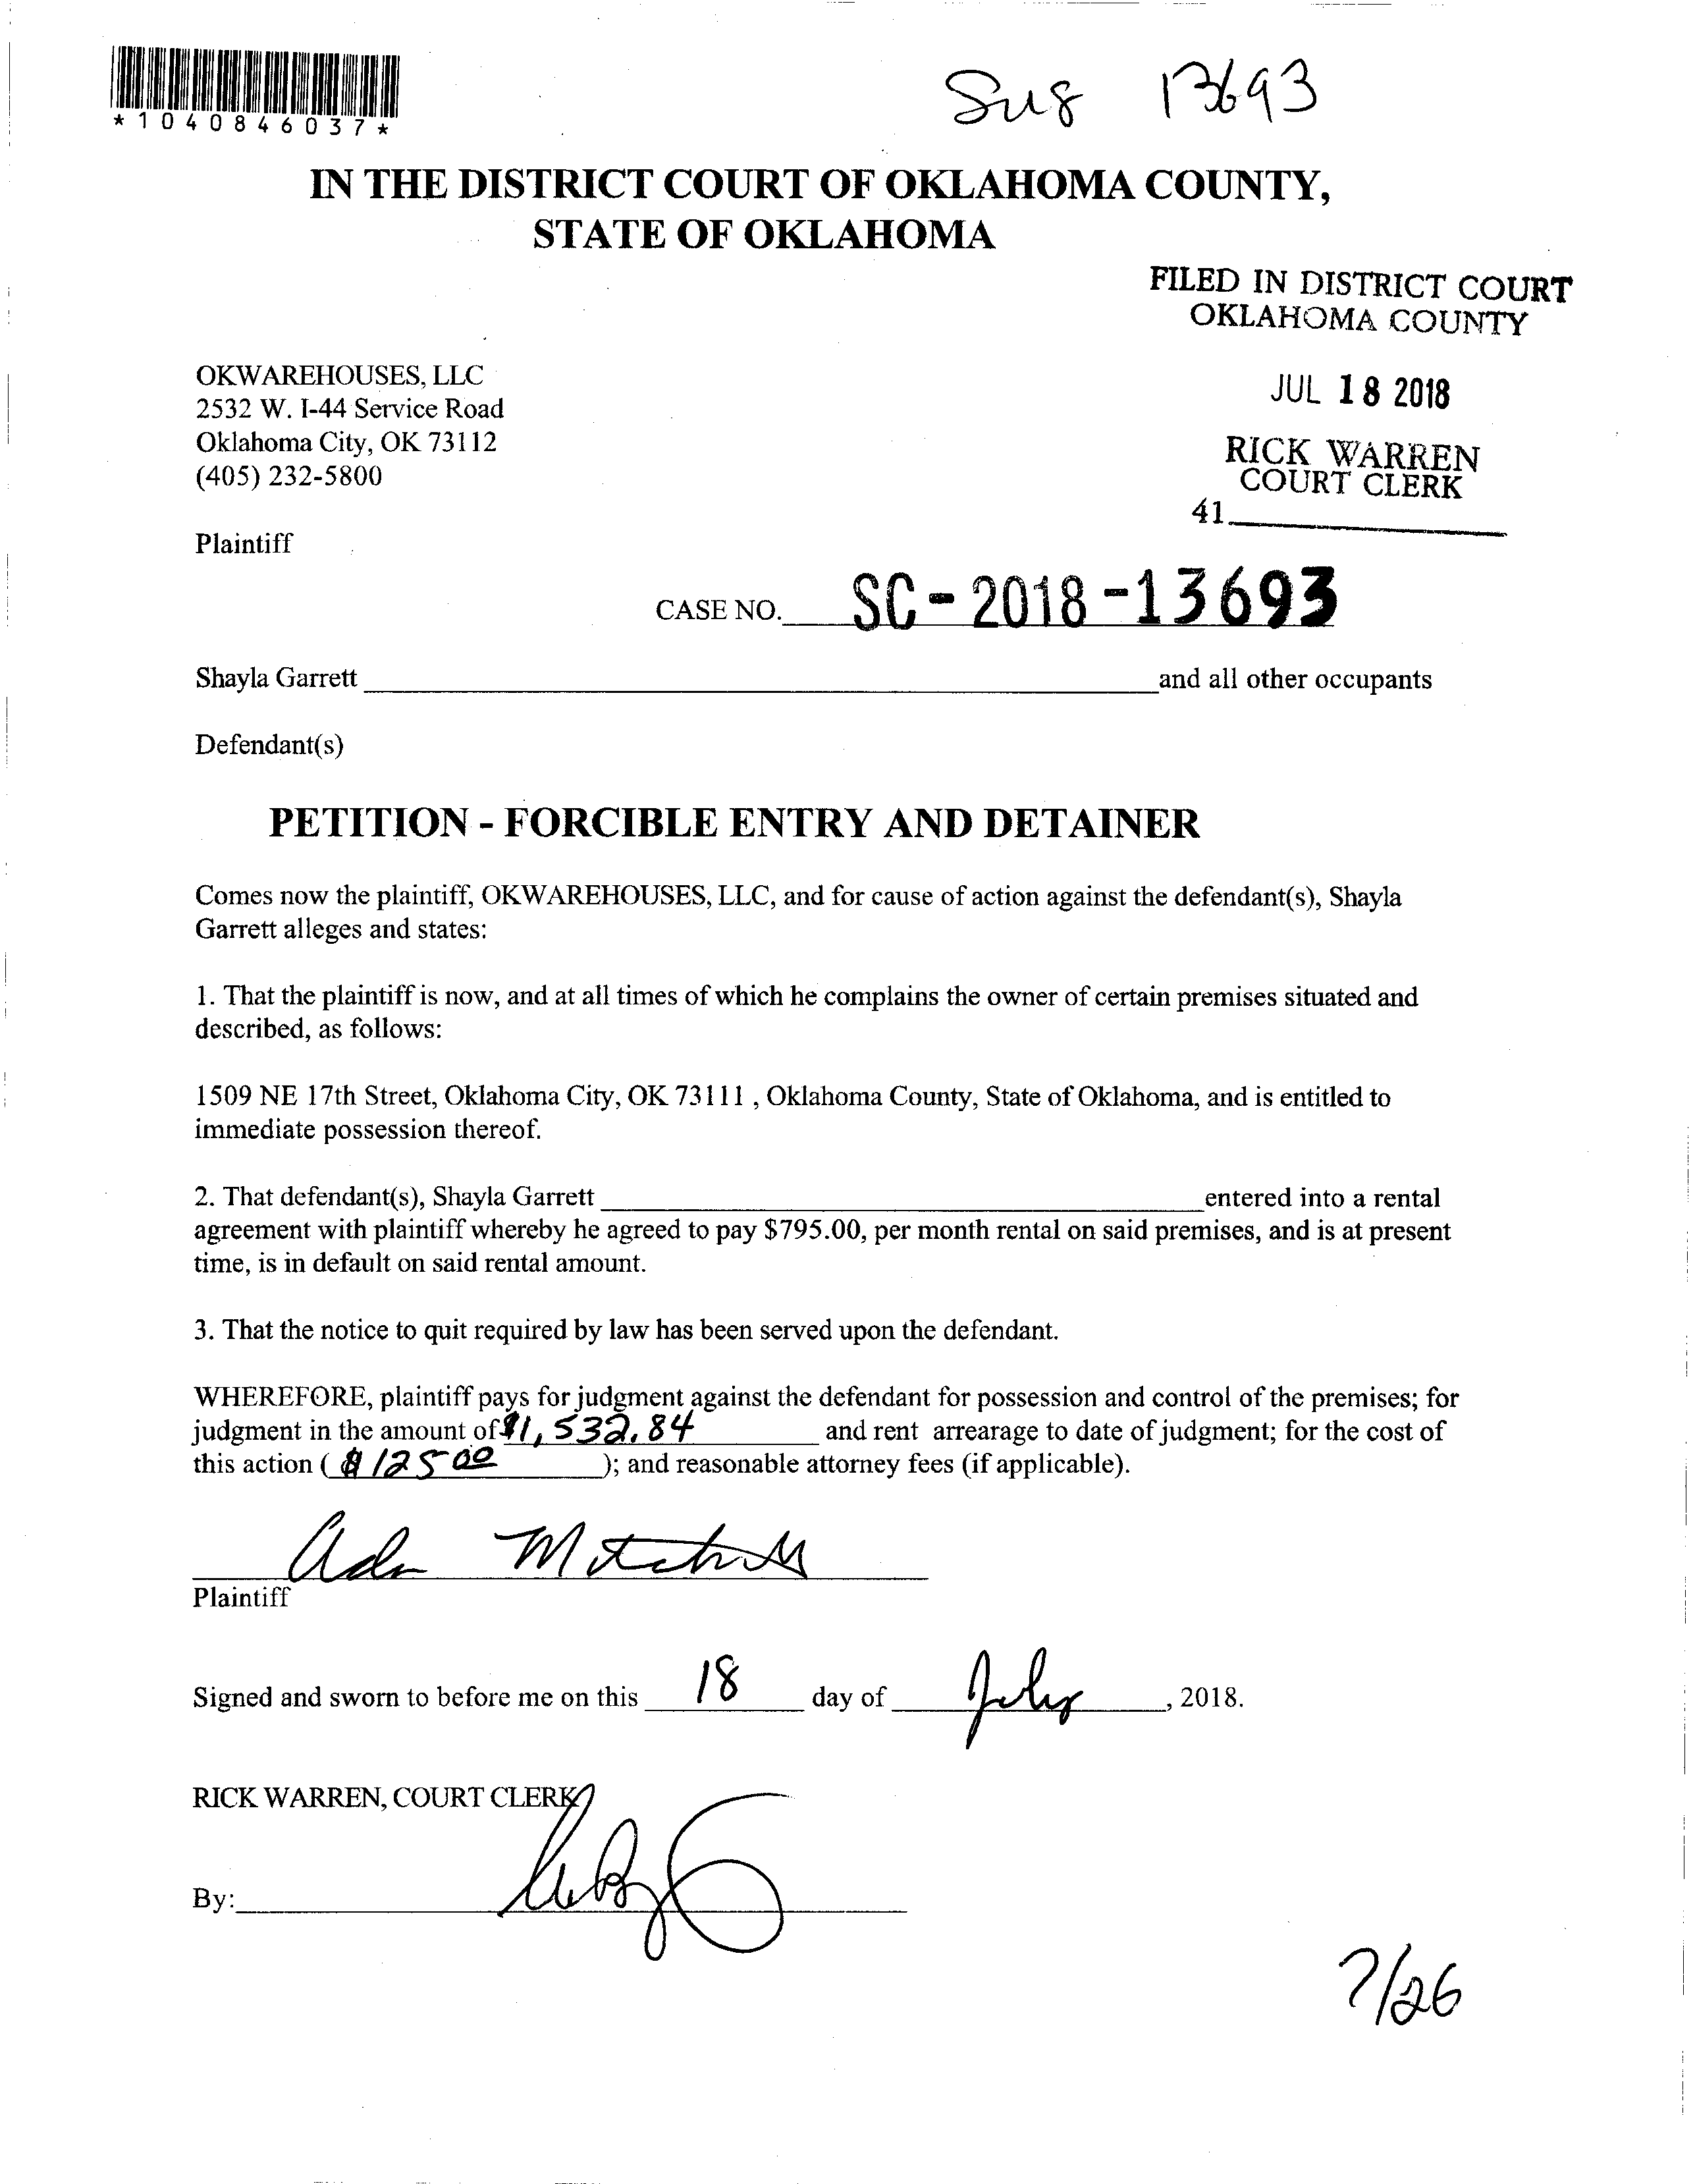 *1040846037*
13693
IN THE DISTRICT COURT OF OKLAHOMA COUNTY,
STATE OF OKLAHOMA
FILED IN DISTRICT COURT
OKLAHOMA COUNTY
JUL 18 2018
RICK WARREN
COURT CLERK
41
OKWAREHOUSES, LLC
2532 W. I-44 Service Road
Oklahoma City, OK 73112
(405) 232-5800
Plaintiff
CASE NO. SC-2018-13693
Shayla Garrett and all other occupants
Defendant(s)
PETITION - FORCIBLE ENTRY AND DETAINER
Comes now the plaintiff, OKWAREHOUSES, LLC, and for cause of action against the defendant(s), Shayla
Garrett alleges and states:
1. That the plaintiff is now, and at all times of which he complains the owner of certain premises situated and
described, as follows:
1509 NE 17th Street, Oklahoma City, OK 73111 , Oklahoma County, State of Oklahoma, and is entitled to
immediate possession thereof.
2. That defendant(s), Shayla Garrett entered into a rental
agreement with plaintiff whereby he agreed to pay $795.00, per month rental on said premises, and is at present
time, is in default on said rental amount.
3. That the notice to quit required by law has been served upon the defendant.
WHEREFORE, plaintiff pays for judgment against the defendant for possession and control of the premises; for
judgment in the amount of $1,532.84 and rent arrearage to date of judgment; for the cost of
this action ( $ 125 00 ); and reasonable attorney fees (if applicable).
Mitchell
Plaintiff
Signed and sworn to before me on this 18 day of July , 2018.
RICK WARREN, COURT CLERK
By:
7/26